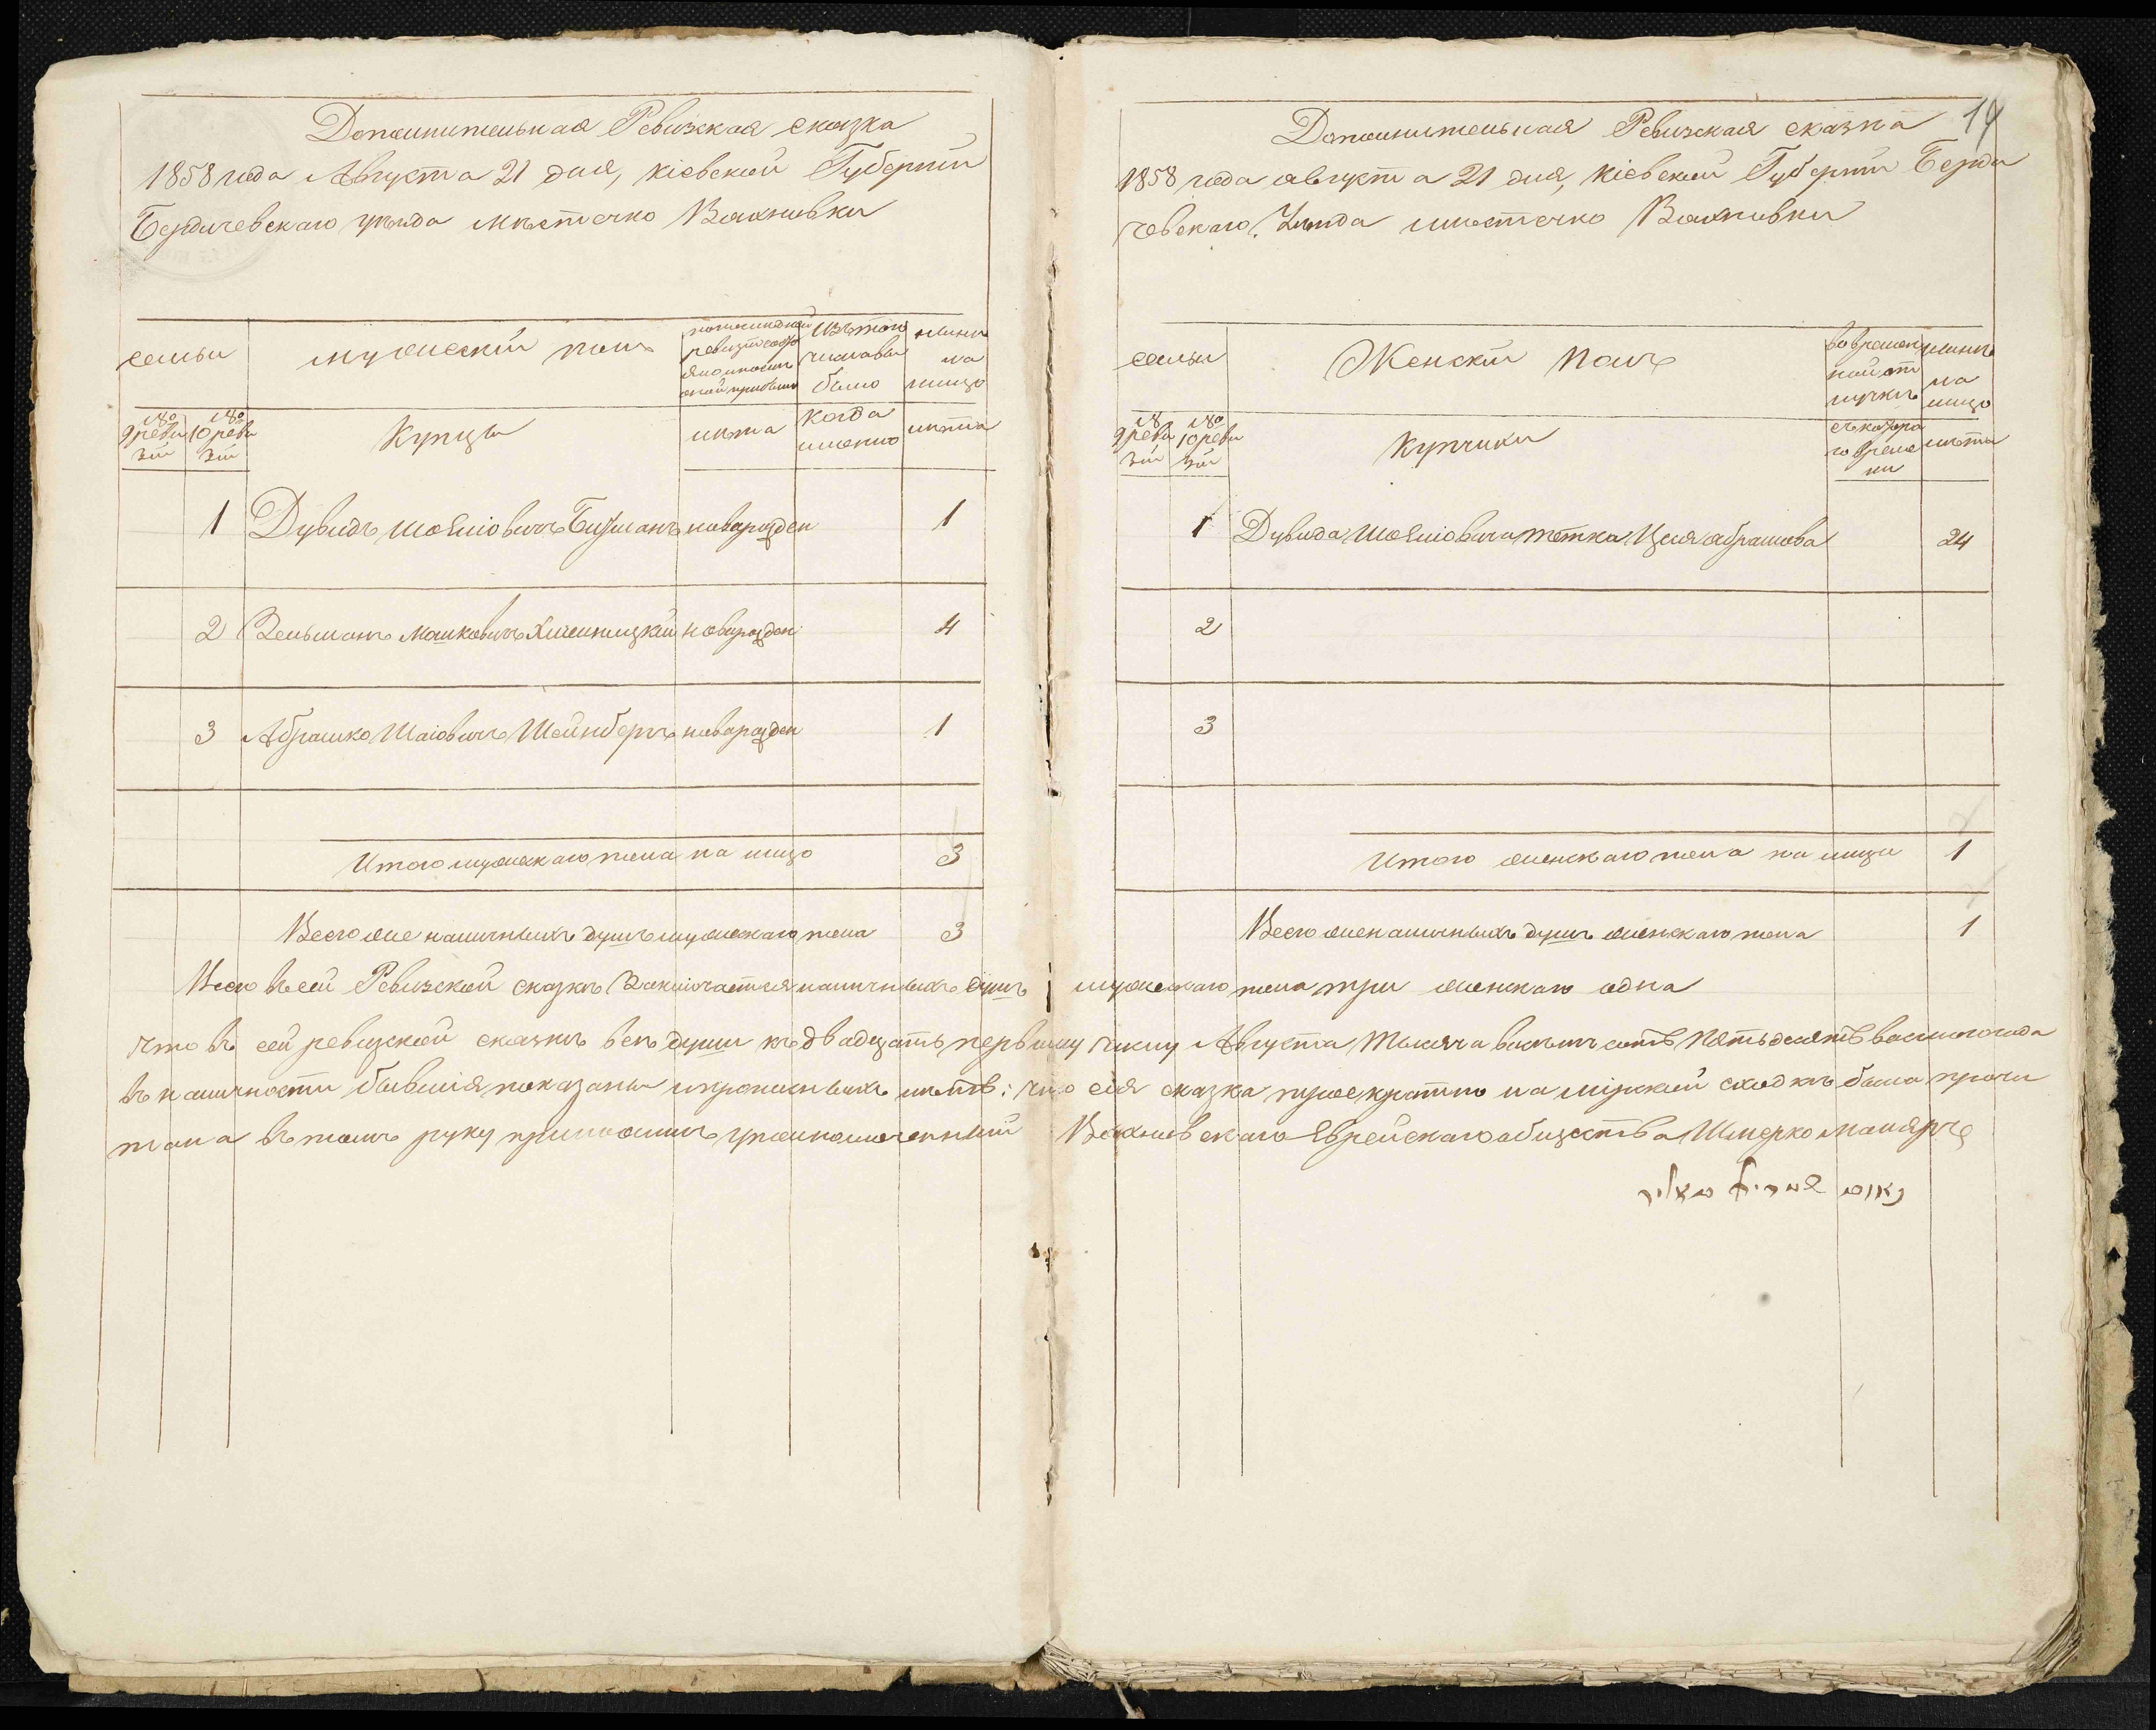 Дополнительная Ревизская сказка
1858 года Августа 21 дня, Кіевской Губерніи
Бердичевскаго уѣзда мѣстечко Вахновки
семьи
мужескій полъ
по последней ревизіи состояло и после оной прибыло
Изъ того числа выбыло
нынѣ на лицо
№ 9 ревизіи
№ 10 ревизіи
Купцы
лѣта
когда именно
лѣта
1 Дувидъ Шоѣліовичъ новарожден 1
2 Зельманъ Машковичъ Хмельницкій новарожден 4
3 Абрашко Шаіовичъ Шейнберъ новарожден 1
Итого мужескаго пола на лицо 3
Всего же наличныхъ душъ мужескаго пола 3
14
Дополнительная Ревизская сказка
1858 года августа 21 дня, Кіевской Губерніи Берди
чевскаго Уѣзда мѣстечко Вахновки
семьи
Женскій Полъ
во времен ной от лучкѣ
нынѣ на лицо
№ 9 ревизіи
№ 10 ревизіи
Купчихи
съ котора го време ни
лѣта
1 Дувида Шоѣліовича тетка Абрашова 24
2
3
Итого женскаго пола на лицо 1
Всего же наличныхъ душъ женскаго пола 1
Всего въ сей Ревизской сказкѣ Заключается наличныхъ душъ мужескаго пола три женскаго одна
Что въ сей ревизской сказкѣ всѣ души къ двадцать первому числу Августа тысяча восѣмъ сотъ Пятьдесятъ восмого года
въ наличности бывшія показаны и пропискныхъ нѣтъ: что сія сказка троекратно на мірской сходкѣ была прочи
тана въ томъ руку приложилъ уполномоченный Вахновскаго Еврейскаго общества Шмерко Маляръ
נאום